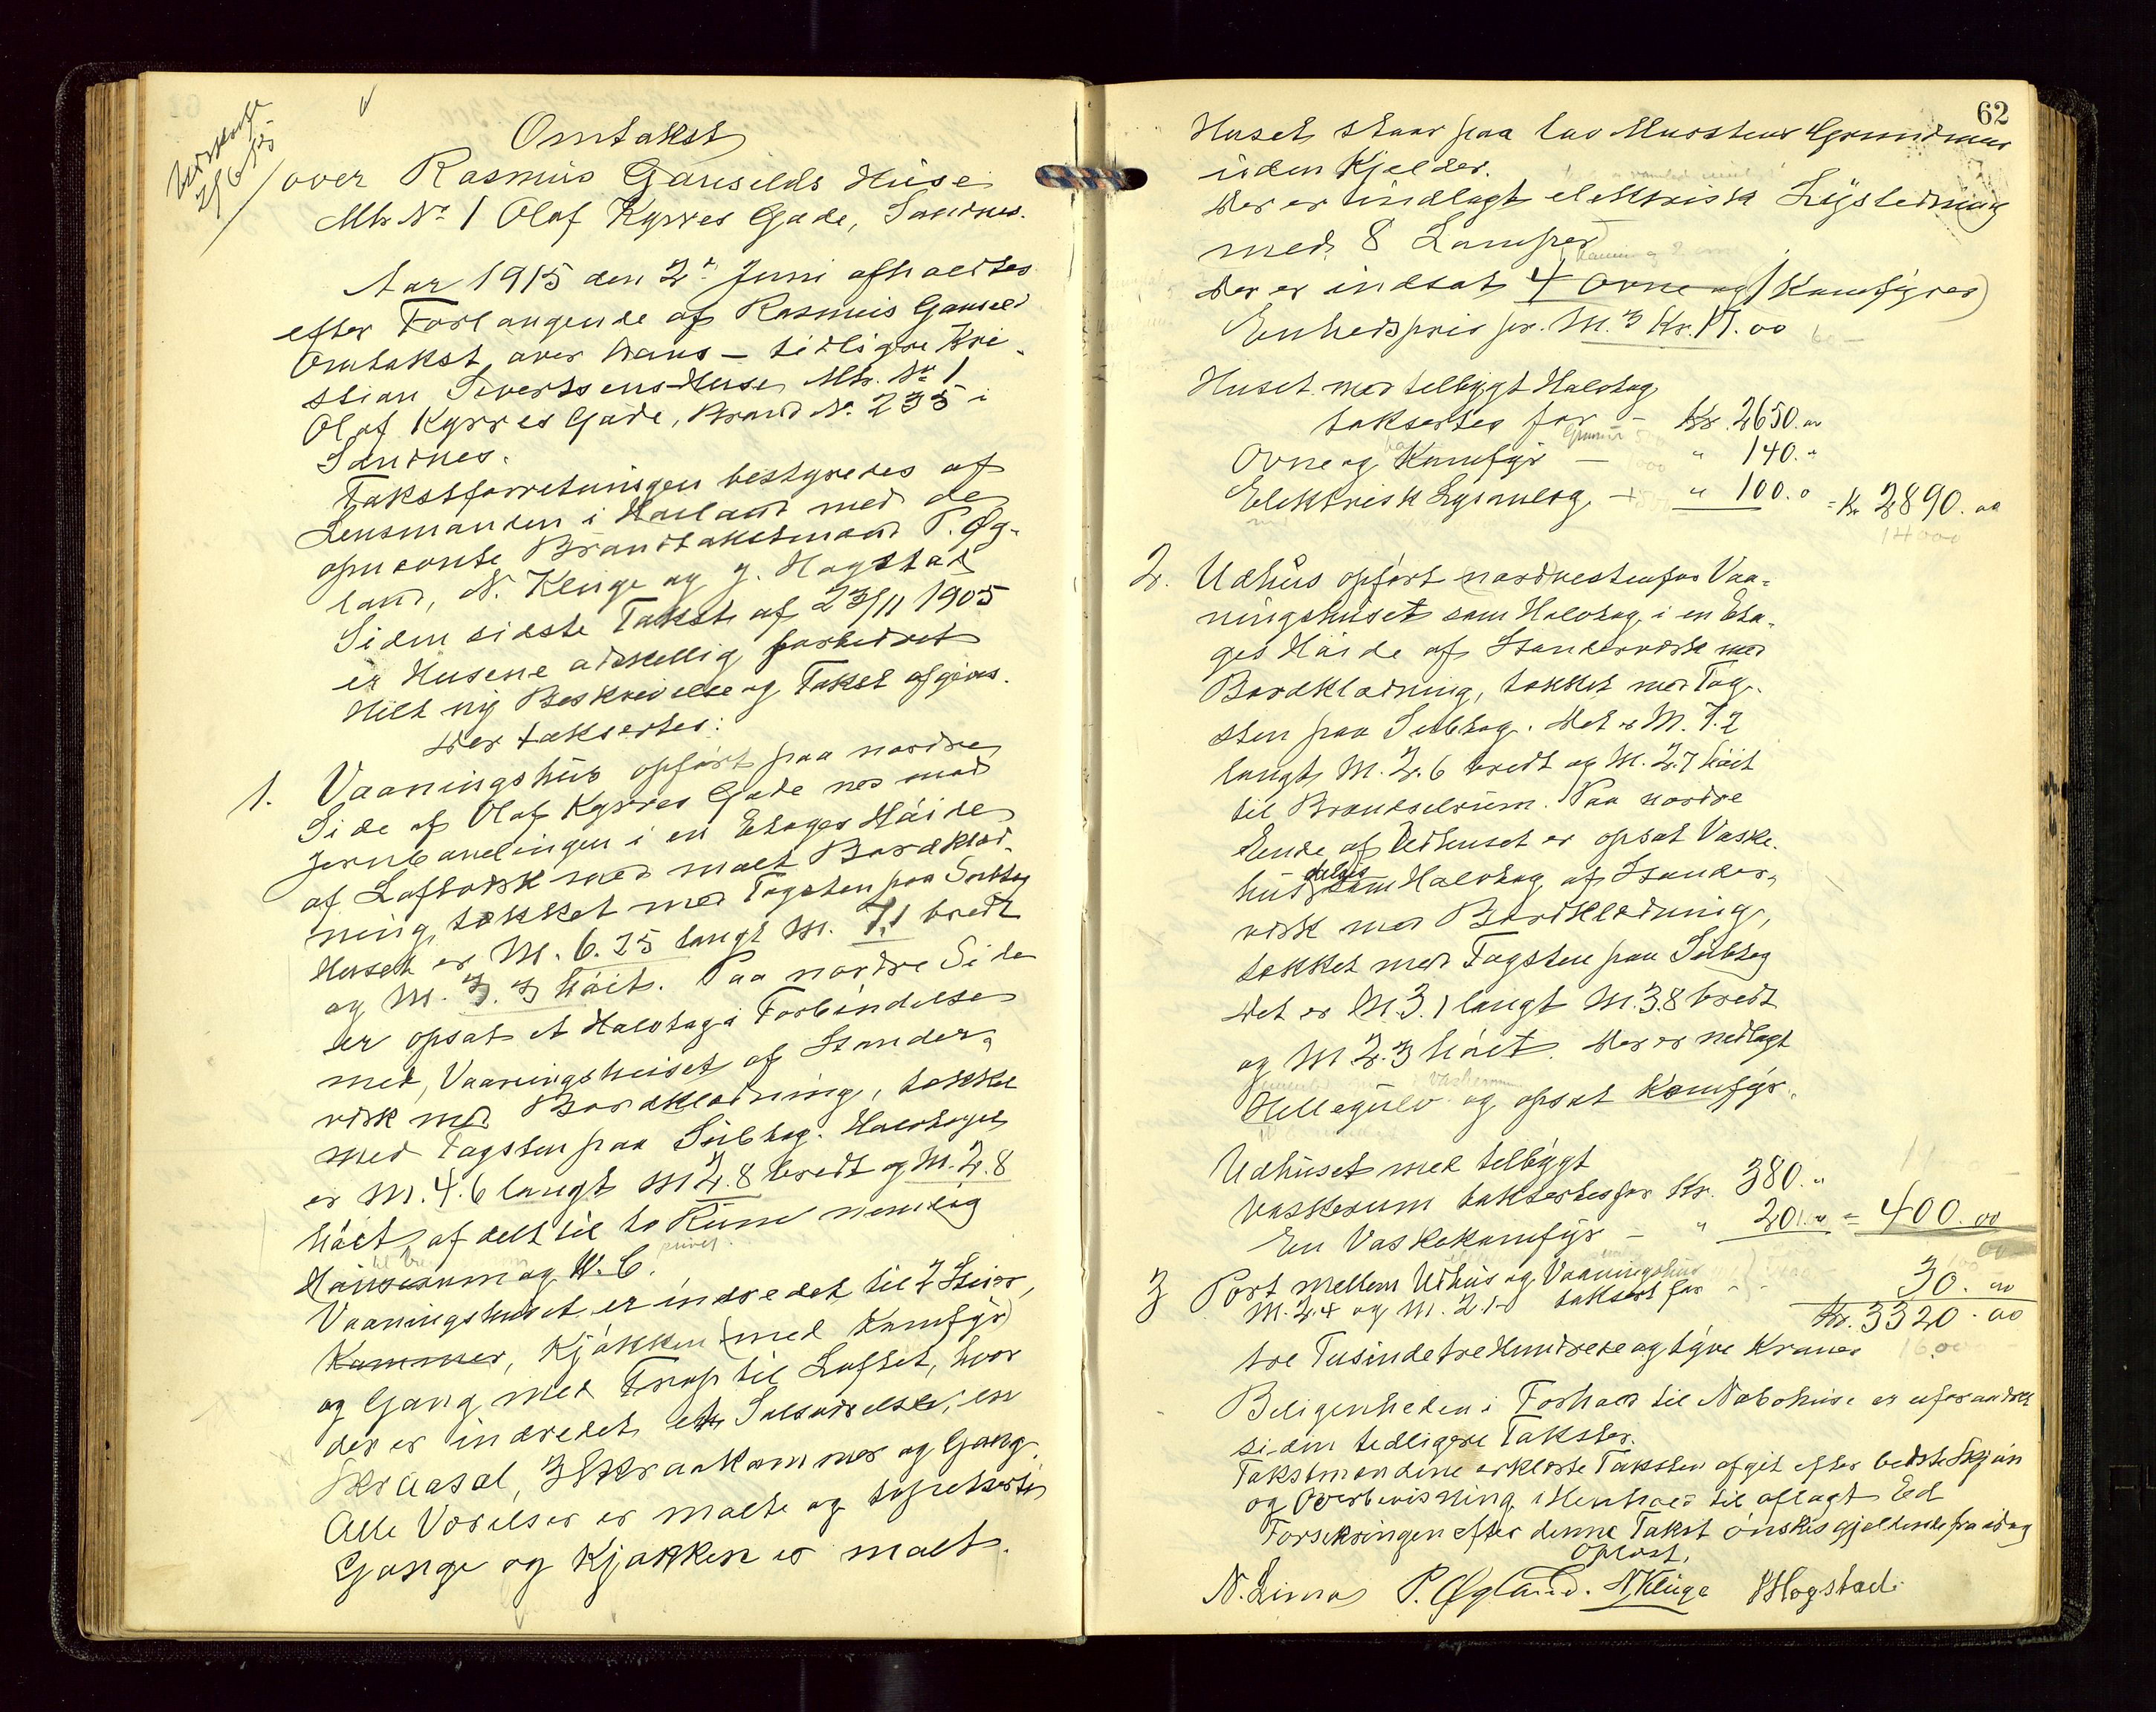 Omtakst
over Rasmus Gausels Huse
Mtr. No 1 Olaf Kyrres Gade, Sandnes.
Aar 1915 den 2' Juni afholdtes
efter Forlangende af Rasmus Gausel
Omtakst over hans - tidligere Kri-
stian Sivertsens Huse Mtr. No 1
Olaf Kyrres Gade, Brand No. 235 i
Sandnes.
Takstforretningen bestyredes af
Lensmanden i Høiland med de
opnævnte Brandtakstmænd P. Øg-
land, N. Kluge og J. Hogstad
Siden sidste Takst af 23/11 1905
er Husene adskillig forbedret
Helt ny Beskrivelse og Takst afgives.
Der taksertes:
1. Vaaningshus opført paa nordre
Side af Olaf Kyrres Gade ned mod
Jernbanelinjen i en Etages Høide
af Laftverk med malt Bordklæd-
ning, tækket med Tagsten paa Subtag
Huset er M. 6.25 langt M. 7.1 bredt
og M. 3.3 høit. Paa nordre Side
er opsat et Halvtag i Forbindelse
med Vaaningshuset af Stander-
værk med Bordklædning, tækket
med Tagsten paa Subtag. Halvtaget
er M. 4.6 langt M 2.8 bredt og M. 2.8
høit, afdelt til to Rum nemlig
og W.C.
Vaaningshuset er indredet til 2 Stuer,
Kammer, Kjøkken (med Komfyr)
og Gang med Trap til Loftet, hvor
der er indredet et Salsværelse, en
Skraasal, 3 Skraakammer og Gang.
Alle Værelser er malte og tapetserte,
Gange og Kjøkken er malt.
62
Huset staar paa lav Murstens Grundmur
uden Kjelder.
Der er indlagt elektrisk Lysledning
med 8 Lamper
Der er indsat 4 Ovne og 1 Komfyrer)
Enhedspris pr. M.3 Kr. 17.00
Huset med tilbygt Halvtag
taksertes for - Kr. 2650.00
Ovne og Komfyr - " 140."
Elektrisk Lysanlæg - " 100.0 = Kr 2890.00
14000
2. Udhus opført nordvestenfor Vaa-
ningshuset som Halvtag i en Eta-
ges Høide af Standerværk med
Bordklædning, tækket med Tag-
sten paa Subtag. Det er M. 7.2
langt M. 2.6 bredt og M. 2.7 høit
til Brændselrum. Paa nordre
Ende af Udhuset er opsat Vaske-
hus delvis som Halvtag af Stander-
værk med Bordklædning,
tækket med Tagsten paa Subtag
Det er M. 3.1 langt M. 3.8 bredt
og M 2.3 høit. Der er nedlagt
Hellegulv og opsat Komfyr.
Udhuset med tilbygt
Vaskerum taksertes for Kr. 380."
En Vaskekomfyr - " 20.00 = 400.00
3 Port mellem Udhus og Vaaningshus
M. 2.4 og M. 2.1 taksert for - 30.00
Kr. 3320.00
tre Tusinde tre Hundrede og tyve Kroner
Beligenheden i Forhold til Nabohuse er uforandret
siden tidligere Takster.
Takstmændene erklærte Taksten afgit efter bedste Skjøn
og Overbevisning i Henhold til aflagt Ed
Forsikringen efter denne Takst ønskes gjeldende fra idag
Oplæst.
N. Lima P. Øgland. N Kluge J Hogstad.